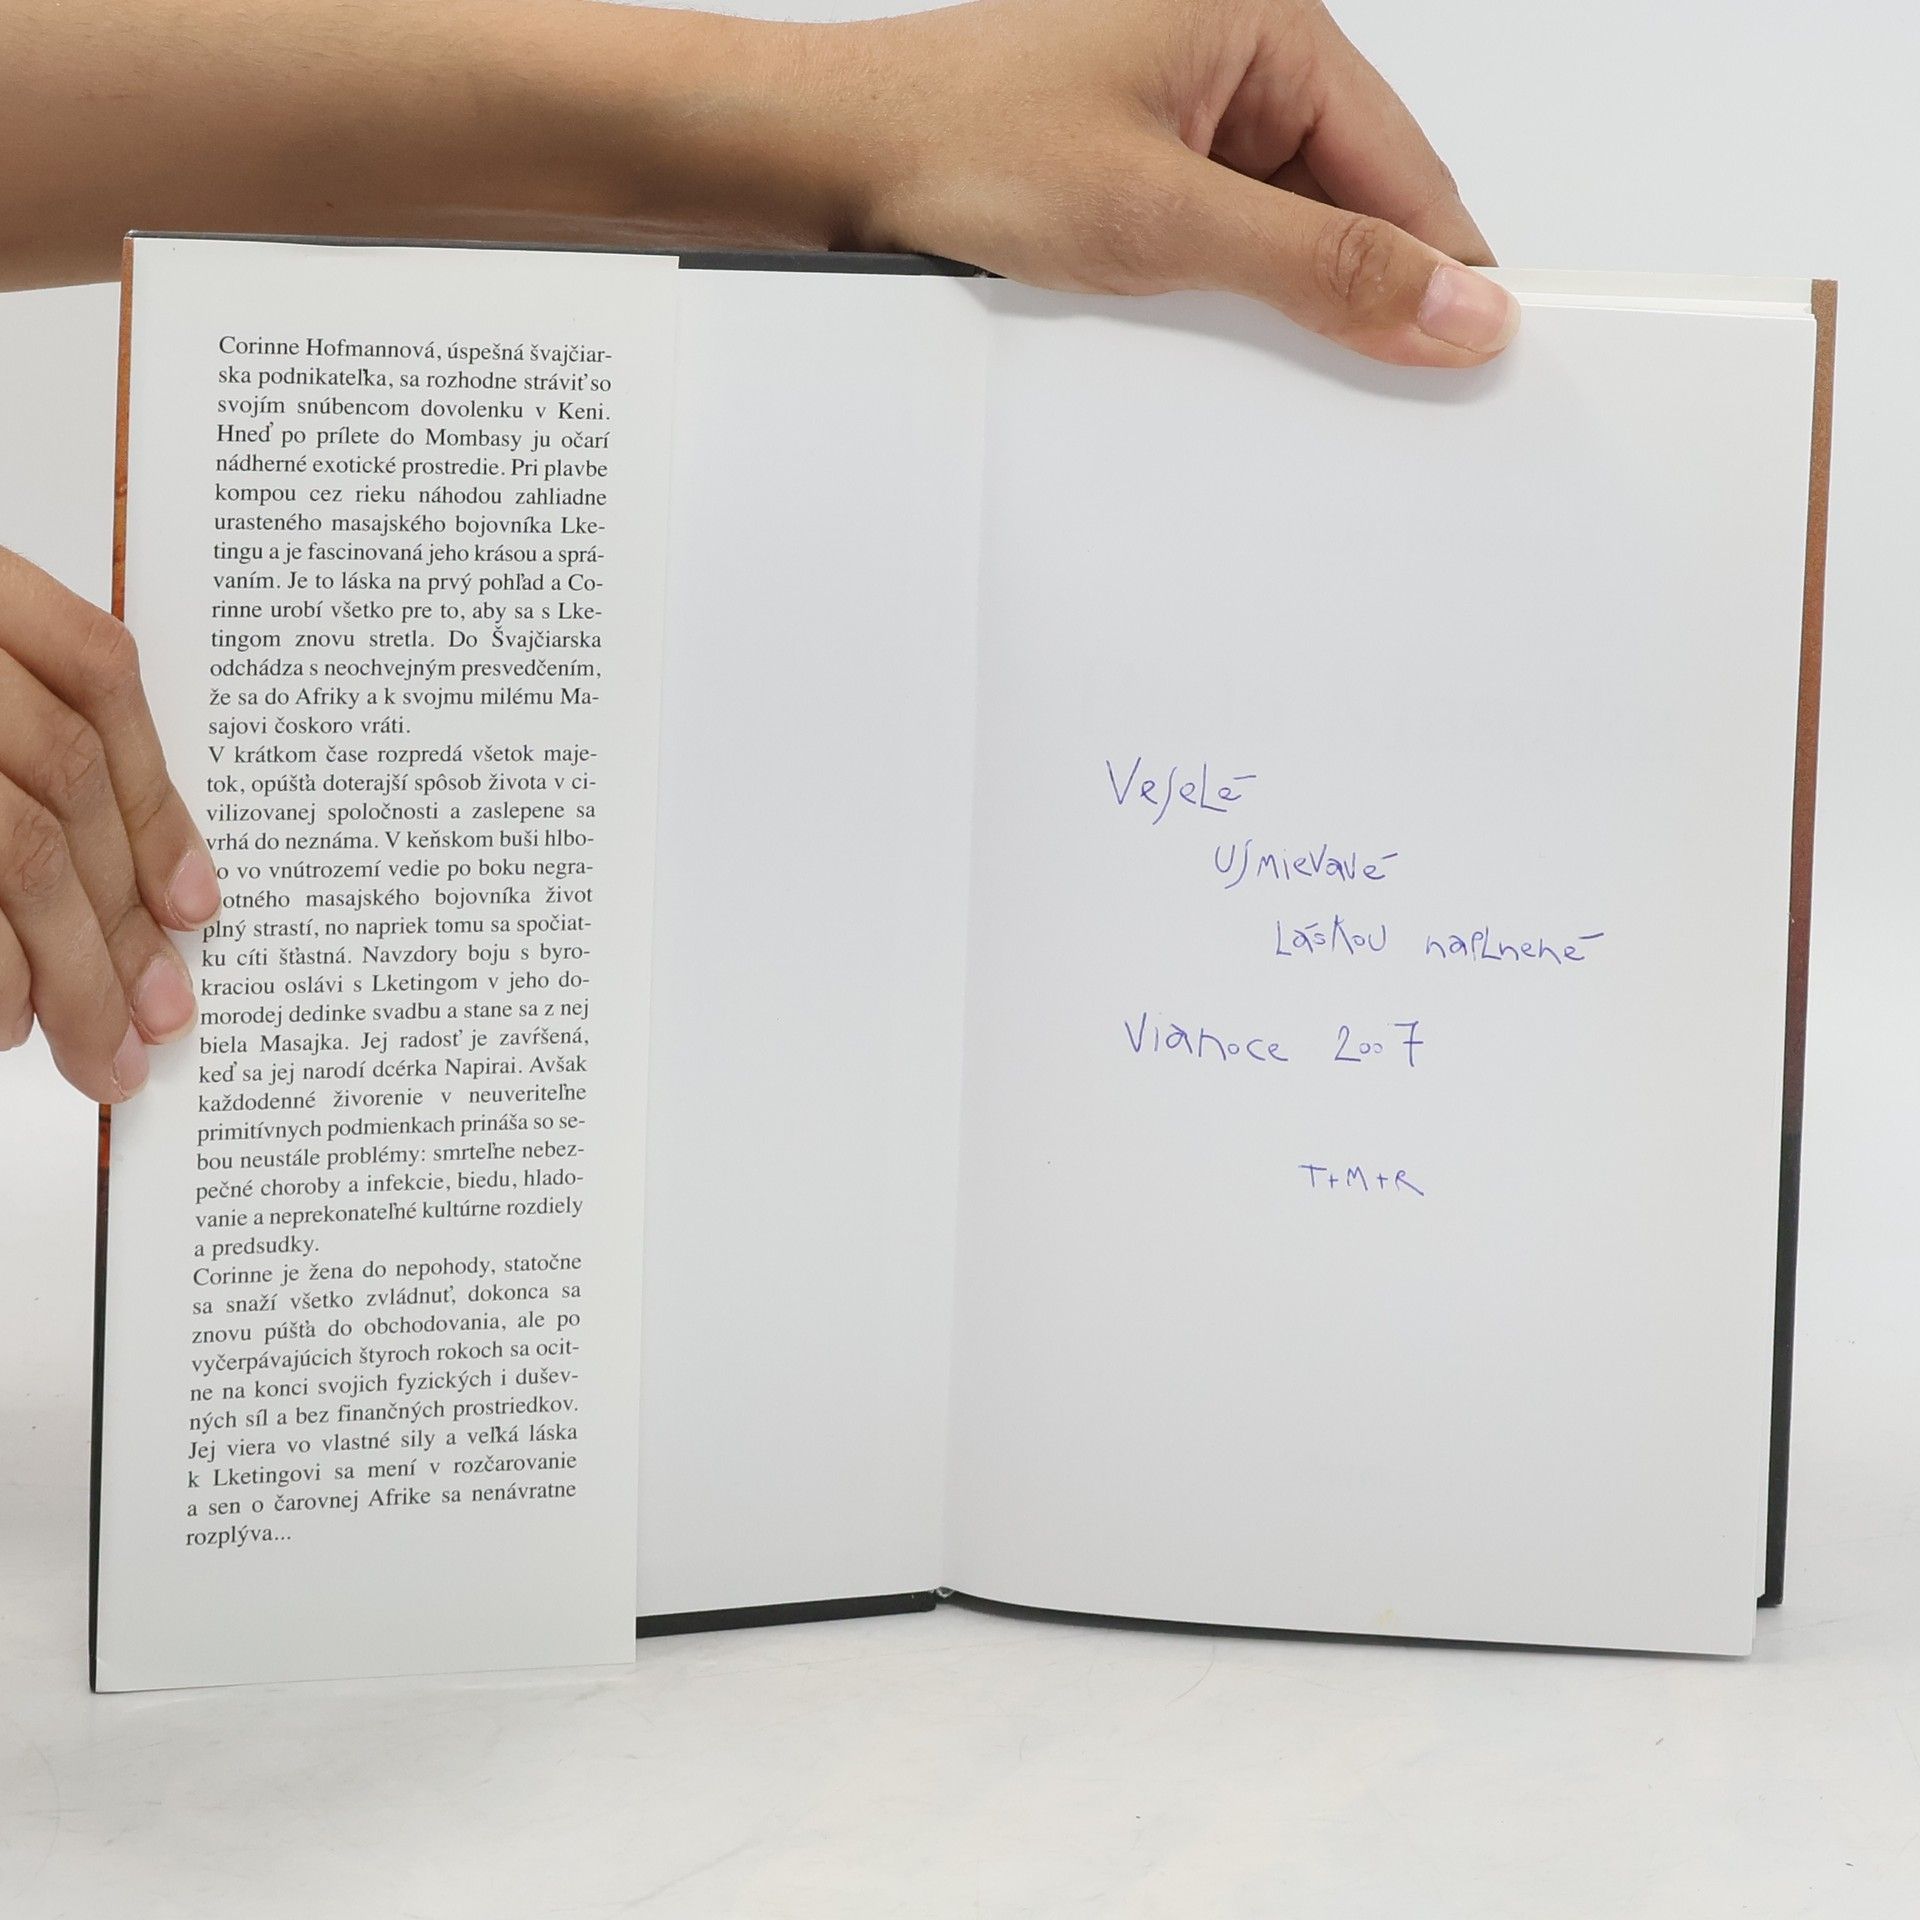 Corinne Hofmannová, úspešná švajčiar-
ska podnikateľka, sa rozhodne stráviť so
svojím snúbencom dovolenku v Keni.
Hneď po prílete do Mombasy ju očarí
nádherné exotické prostredie. Pri plavbe
kompou cez rieku náhodou zahliadne
urasteného masajského bojovníka Lke-
tingu a je fascinovaná jeho krásou a sprá-
vaním. Je to láska na prvý pohľad a Co-
rinne urobí všetko pre to, aby sa s Lke-
tingom znovu stretla. Do Švajčiarska
odchádza s neochvejným presvedčením,
že sa do Afriky a k svojmu milému Ma-
sajovi čoskoro vráti.
V krátkom čase rozpredá všetok maje-
tok, opúšťa doterajší spôsob života v ci-
vilizovanej spoločnosti a zaslepene sa
vrhá do neznáma. V keňskom buši hlbo-
o vo vnútrozemí vedie po boku negra-
otného masajského bojovníka život
plný strastí, no napriek tomu sa spočiat-
ku cíti šťastná. Navzdory boju s byro-
kraciou oslávi s Lketingom v jeho do-
morodej dedinke svadbu a stane sa z nej
biela Masajka. Jej radosť je zavŕšená,
keď sa jej narodí dcérka Napirai. Avšak
každodenné živorenie v neuveriteľne
primitívnych podmienkach prináša so se-
bou neustále problémy: smrteľne nebez-
pečné choroby a infekcie, biedu, hlado-
vanie a neprekonateľné kultúrne rozdiely
a predsudky.
Corinne je žena do nepohody, statočne
sa snaží všetko zvládnuť, dokonca sa
znovu púšťa do obchodovania, ale po
vyčerpávajúcich štyroch rokoch sa ocit-
ne na konci svojich fyzických i dušev-
ných síl a bez finančných prostriedkov.
Jej viera vo vlastné sily a veľká láska
k Lketingovi sa mení v rozčarovanie
a sen o čarovnej Afrike sa nenávratne
rozplýva...
Veselé
usmievavé
láskou naplnené
Vianoce 2007
T+M+R